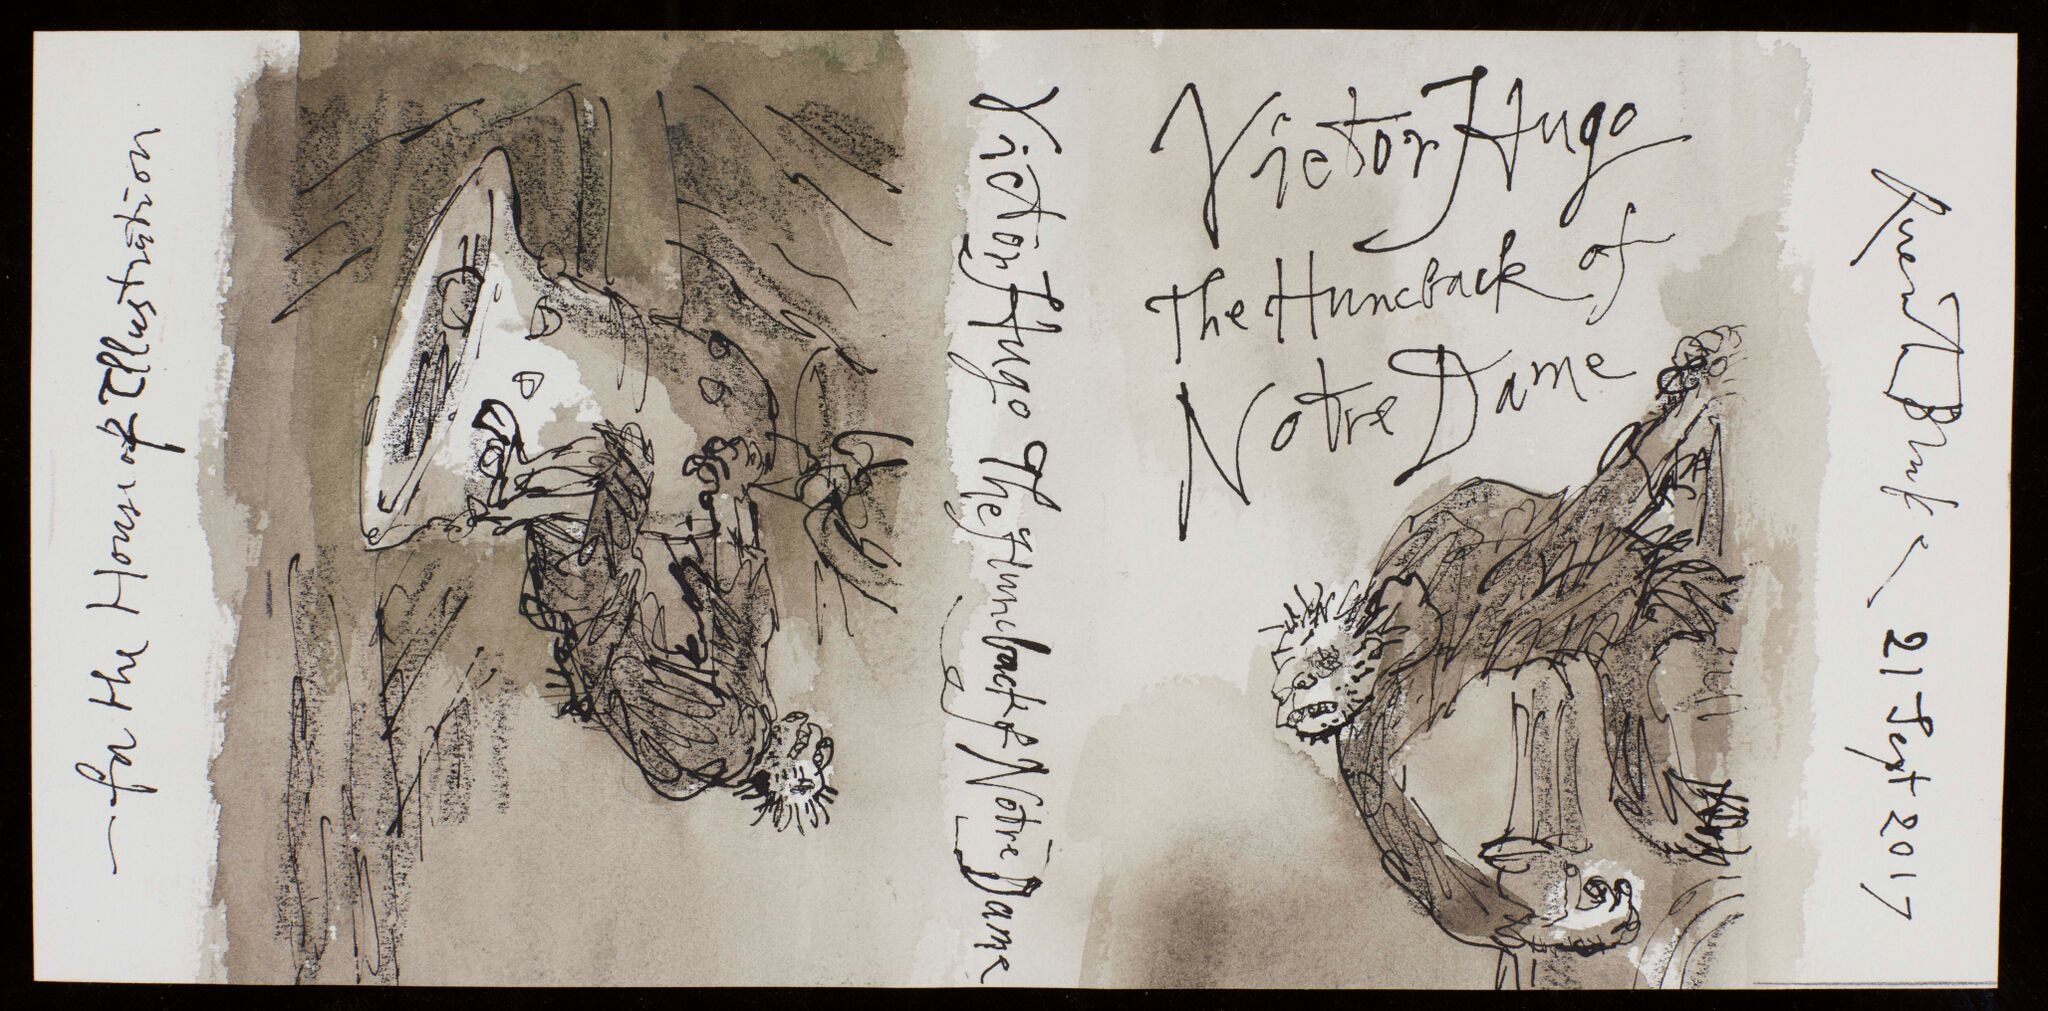 — for the House of Illustration
Victor Hugo The Huncback of Notre Dame
Victor Hugo
The Huncback of
Notre Dame
Quentin Blake 21 Sept 2017